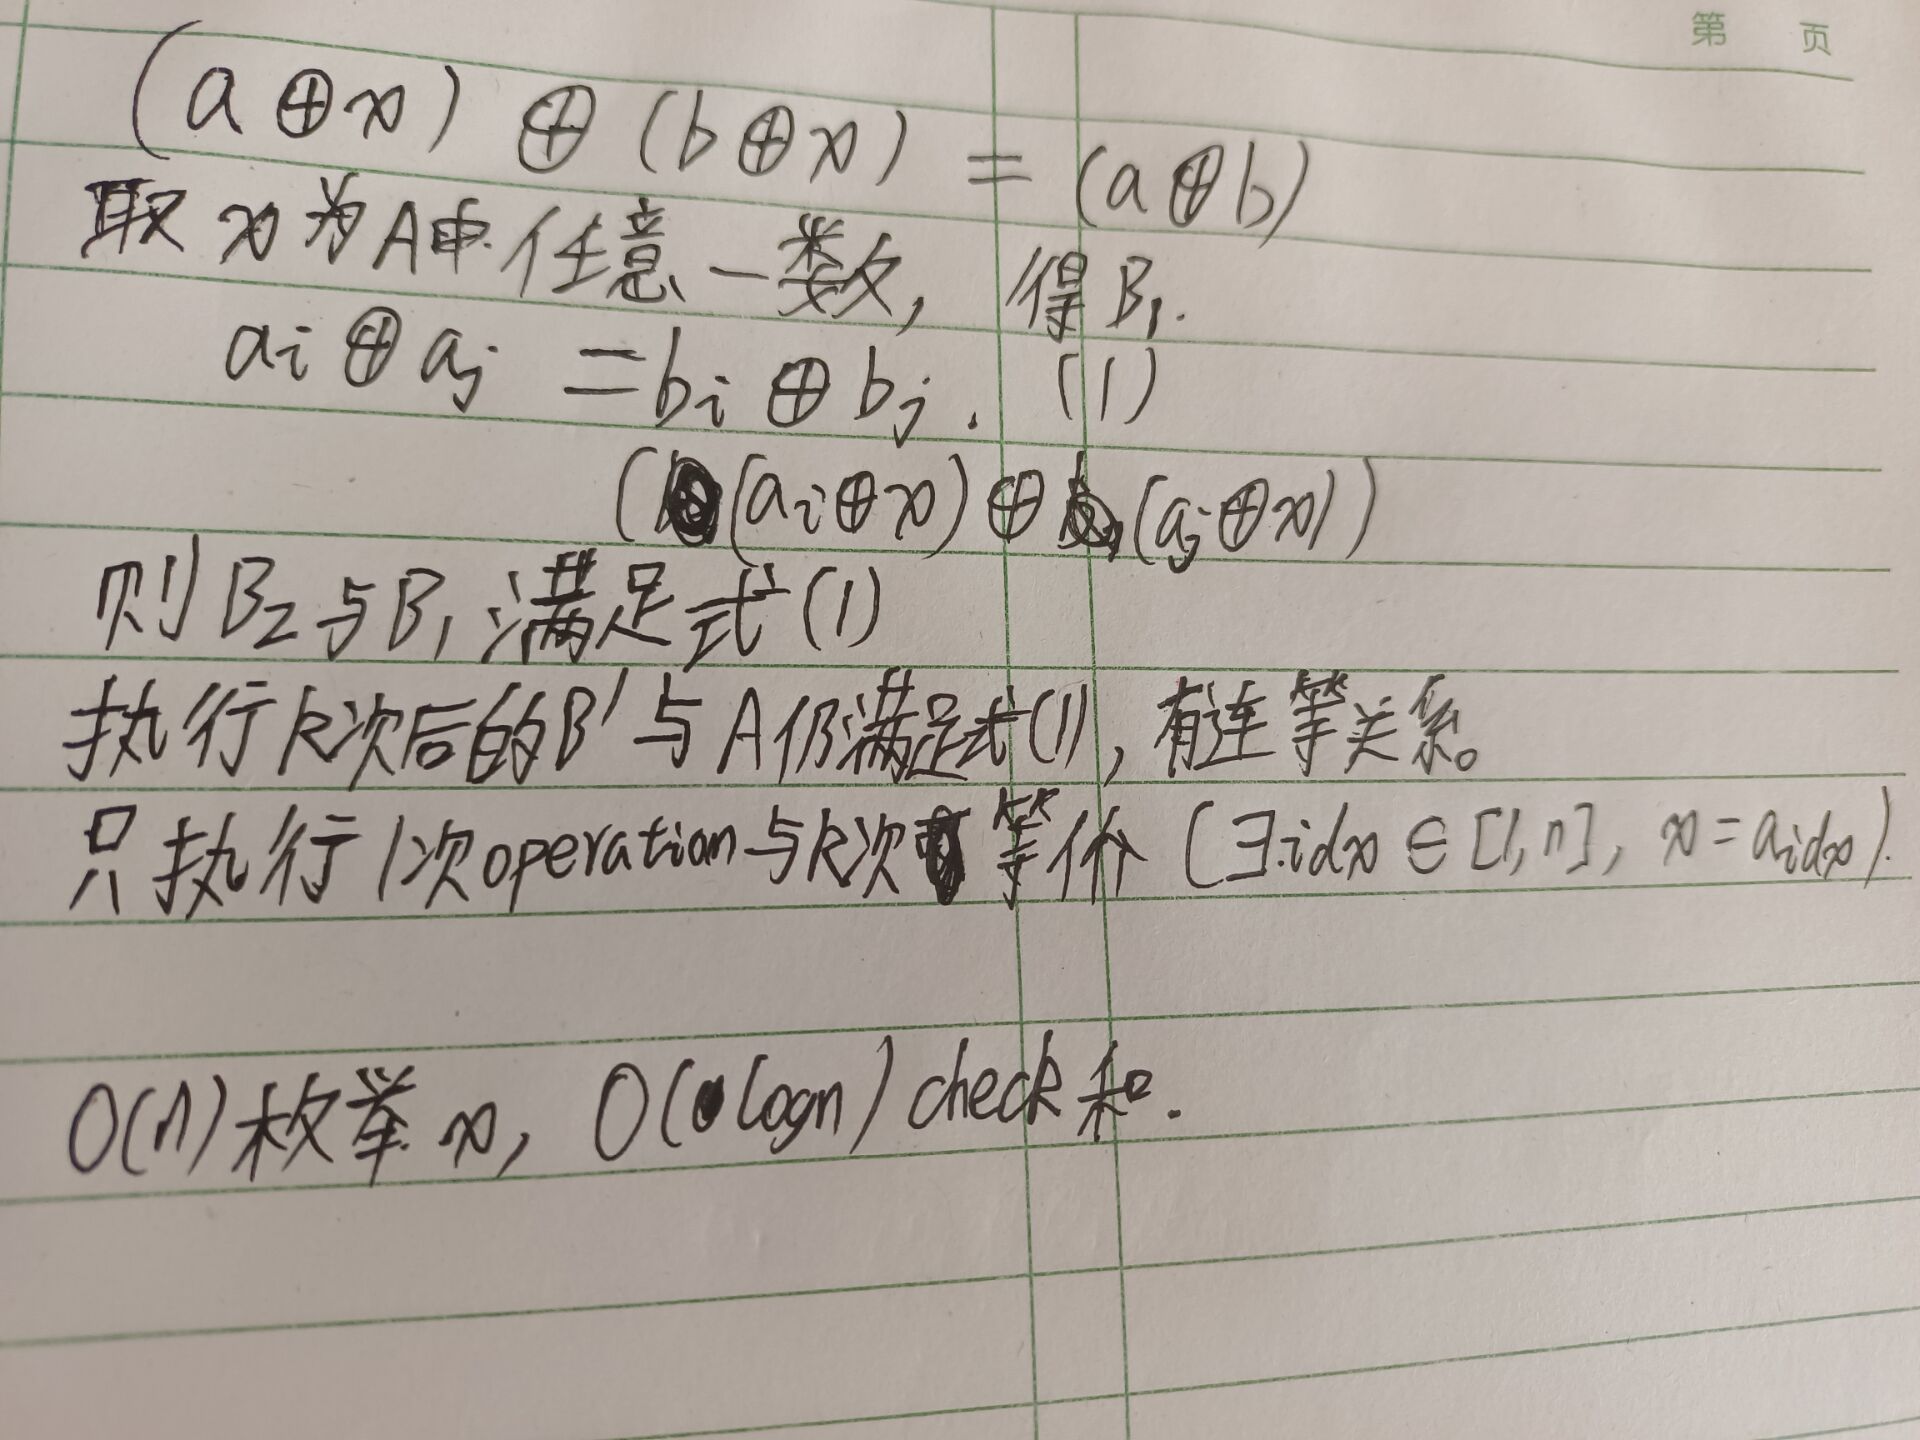 第 页
(a⊕x)⊕(b⊕x)=(a⊕b)
取x为A中任意一数,得B₁.
aᵢ⊕aⱼ=bᵢ⊕bⱼ. (1)
((aᵢ⊕x)⊕(aⱼ⊕x))
则B₂与B₁满足式(1)
执行k次后的B'与A仍满足式(1),有连等关系。
只执行1次operation与k次等价(∃idx∈[1,n],x=a_idx).
O(n)枚举x,O(logn)check和.